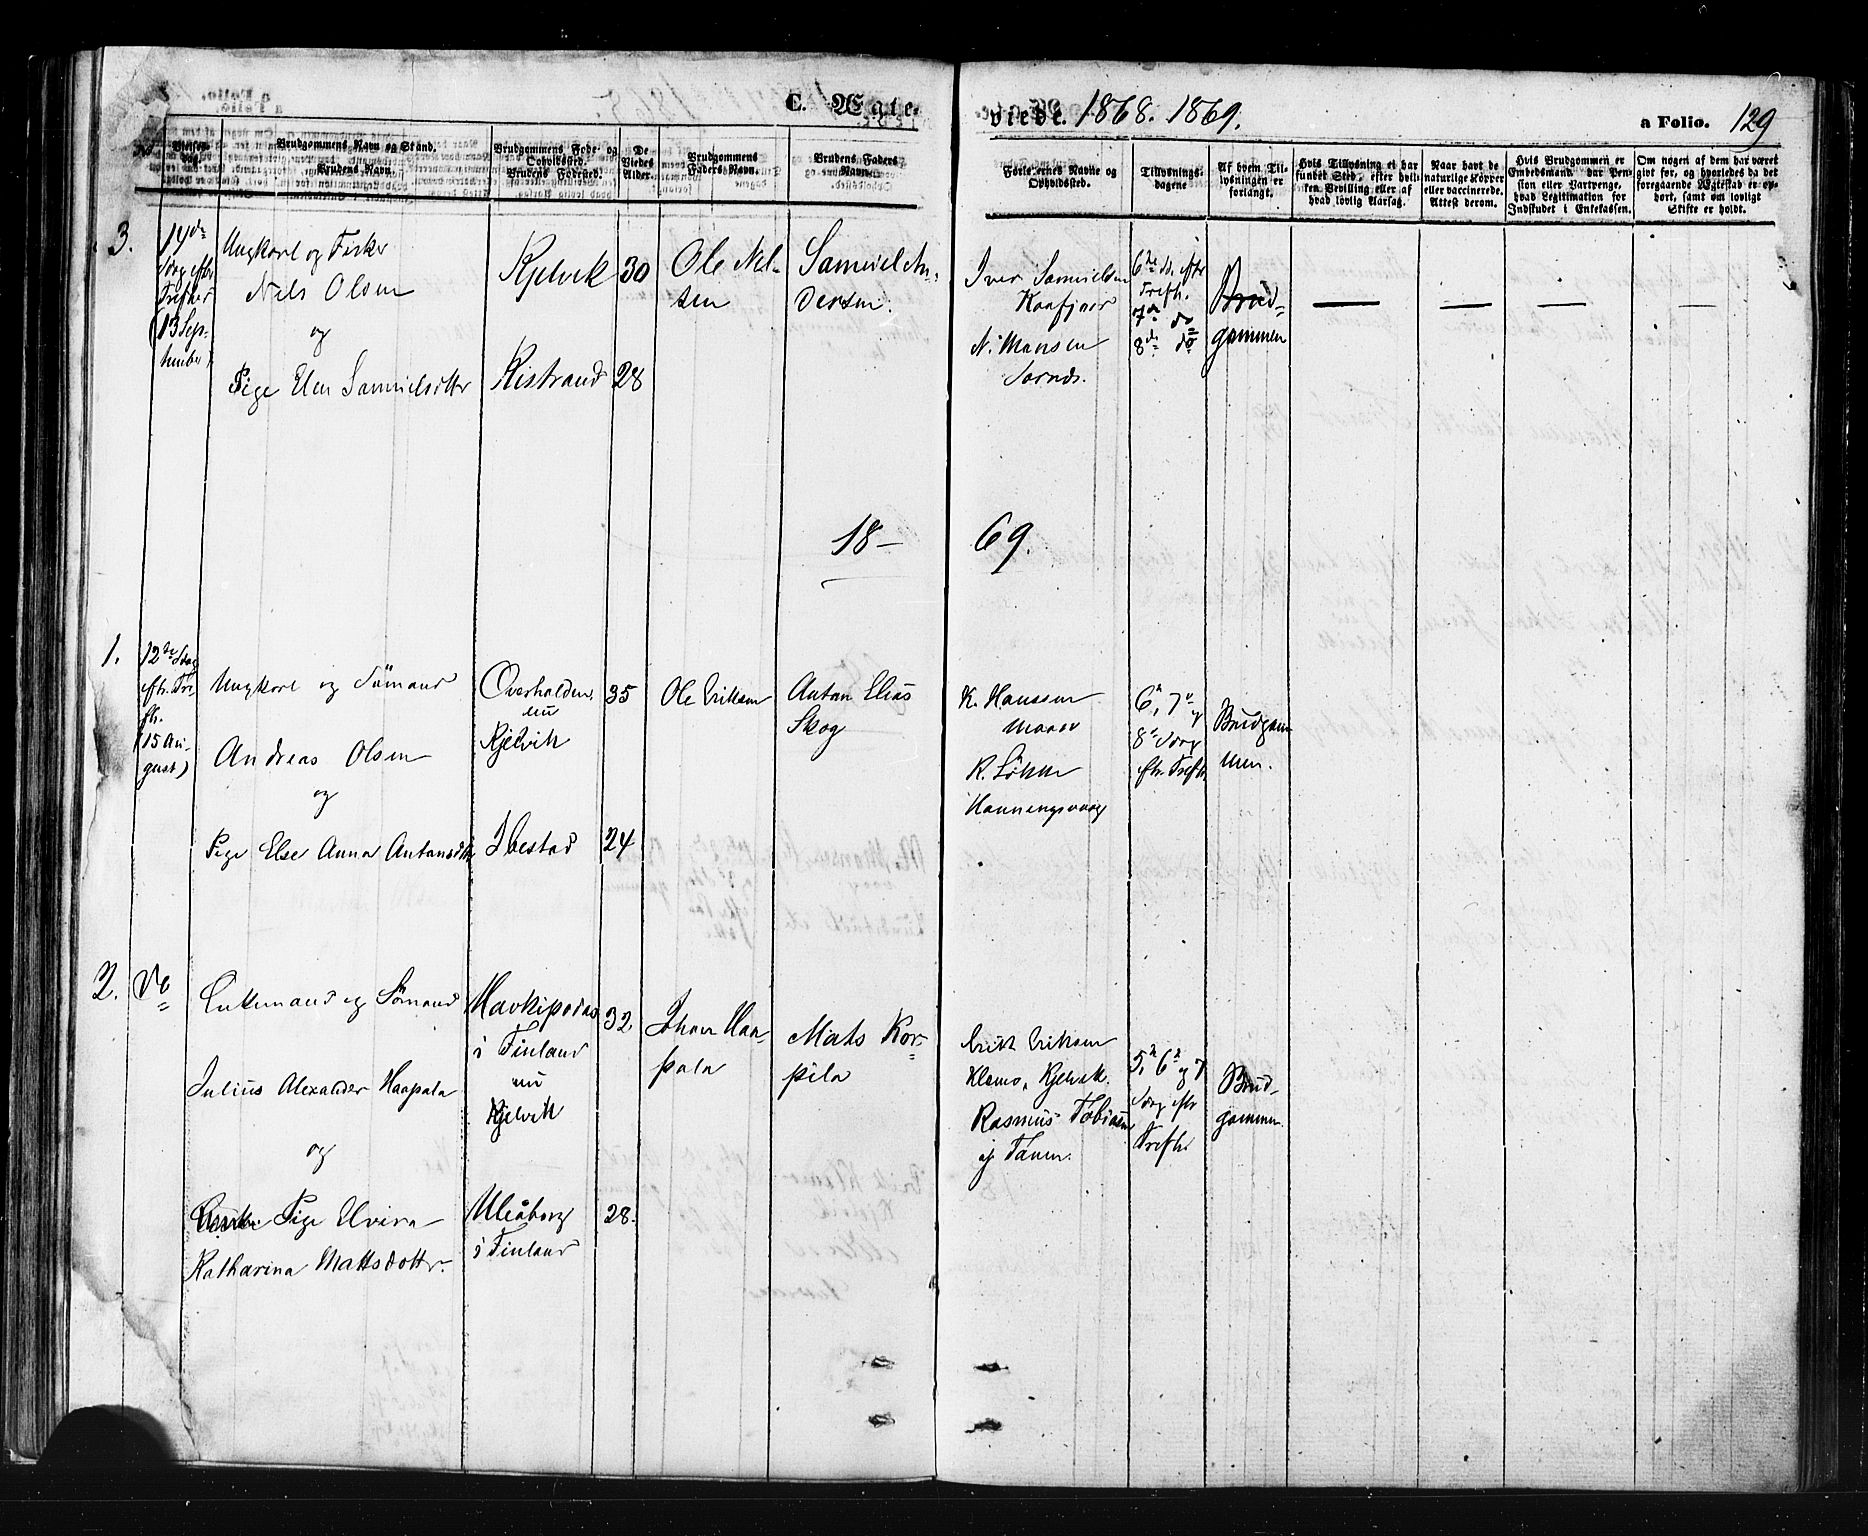 C. Ægte-
viede. 1868. 1869.
a Folio. 129
No.
Vielses-
dag.
Brudgommens Navn og Stand.
Brudens Navn
Brudgommens Føde- og
Opholdssted.
Brudens Fødested.
De
Viedes
Alder.
Brudgommens
Faders Navn.
Brudens Faders
Navn.
Forlovernes Navne og
Opholdssted.
Tillysnings-
dagene
Af hvem Til-
lysningen er
forlangt.
Hvis Tillysning ei har
fundet Sted, efter hvil-
ken Bevilling eller af
hvad lovlig Aarsag.
Naar havt de
naturlige Kopper
eller vaccinerede.
Attest derom.
Hvis Brudgommen er
Embedsmand, dur Pen-
sion eller Vartpenge,
hvad Legitimation for
Indskudet i Enkekassen.
Om nogen af dem har været
gift før, og hvorledes da det
foregaaende Ægteskab er op-
hørt, samt om lovligt
Skifte er holdt.
3.
14de
Søng efter
Trefhts
(13 Sep-
tember)
Ungkarl og Fisker
Nils Olsen
og
Pige Elen Samuelsdtter
Kjelvik
Kistrand
30
28
Ole Nil-
sen
Samuel An-
dersen.
Iver Samuelsen
Kaafjord
N. Hansen
Sarnæs.
6te S. eftr
Trefh.
7de do
8de do
Brud-
gommen
18-69.
1.
12te Søg
eftr. Tre-
fh.
(15 Au-
gust)
Ungkarl og Sömand
Andreas Olsen
og
Pige Else Anna Antonsdtr
Overhalden,
nu
Kjelvik
Ibestad
35
24
Ole Eriksen
Anton Elias
Skog
K. Hanssen
R. Lökke
Honningsvaag
6te, 7de og
8de Søng
eftr. Trefh.
Brudgom-
men.
2.
do
Enkemand og Sömand
Julius Alexander Haapala
og
Pige Elvira
Katharina Mattsdotter
i Finland
nu
Kjelvik
Uleåborg
i Finland
32
28.
Johan Haa-
pala
Mats Kor-
pila
Erik Eriksen
Klemo, Kjelvik.
Rasmus Tobiasen
af Tanen.
5te, 6te og 7
Søng eftr
Trefh.
Brud-
gommen.